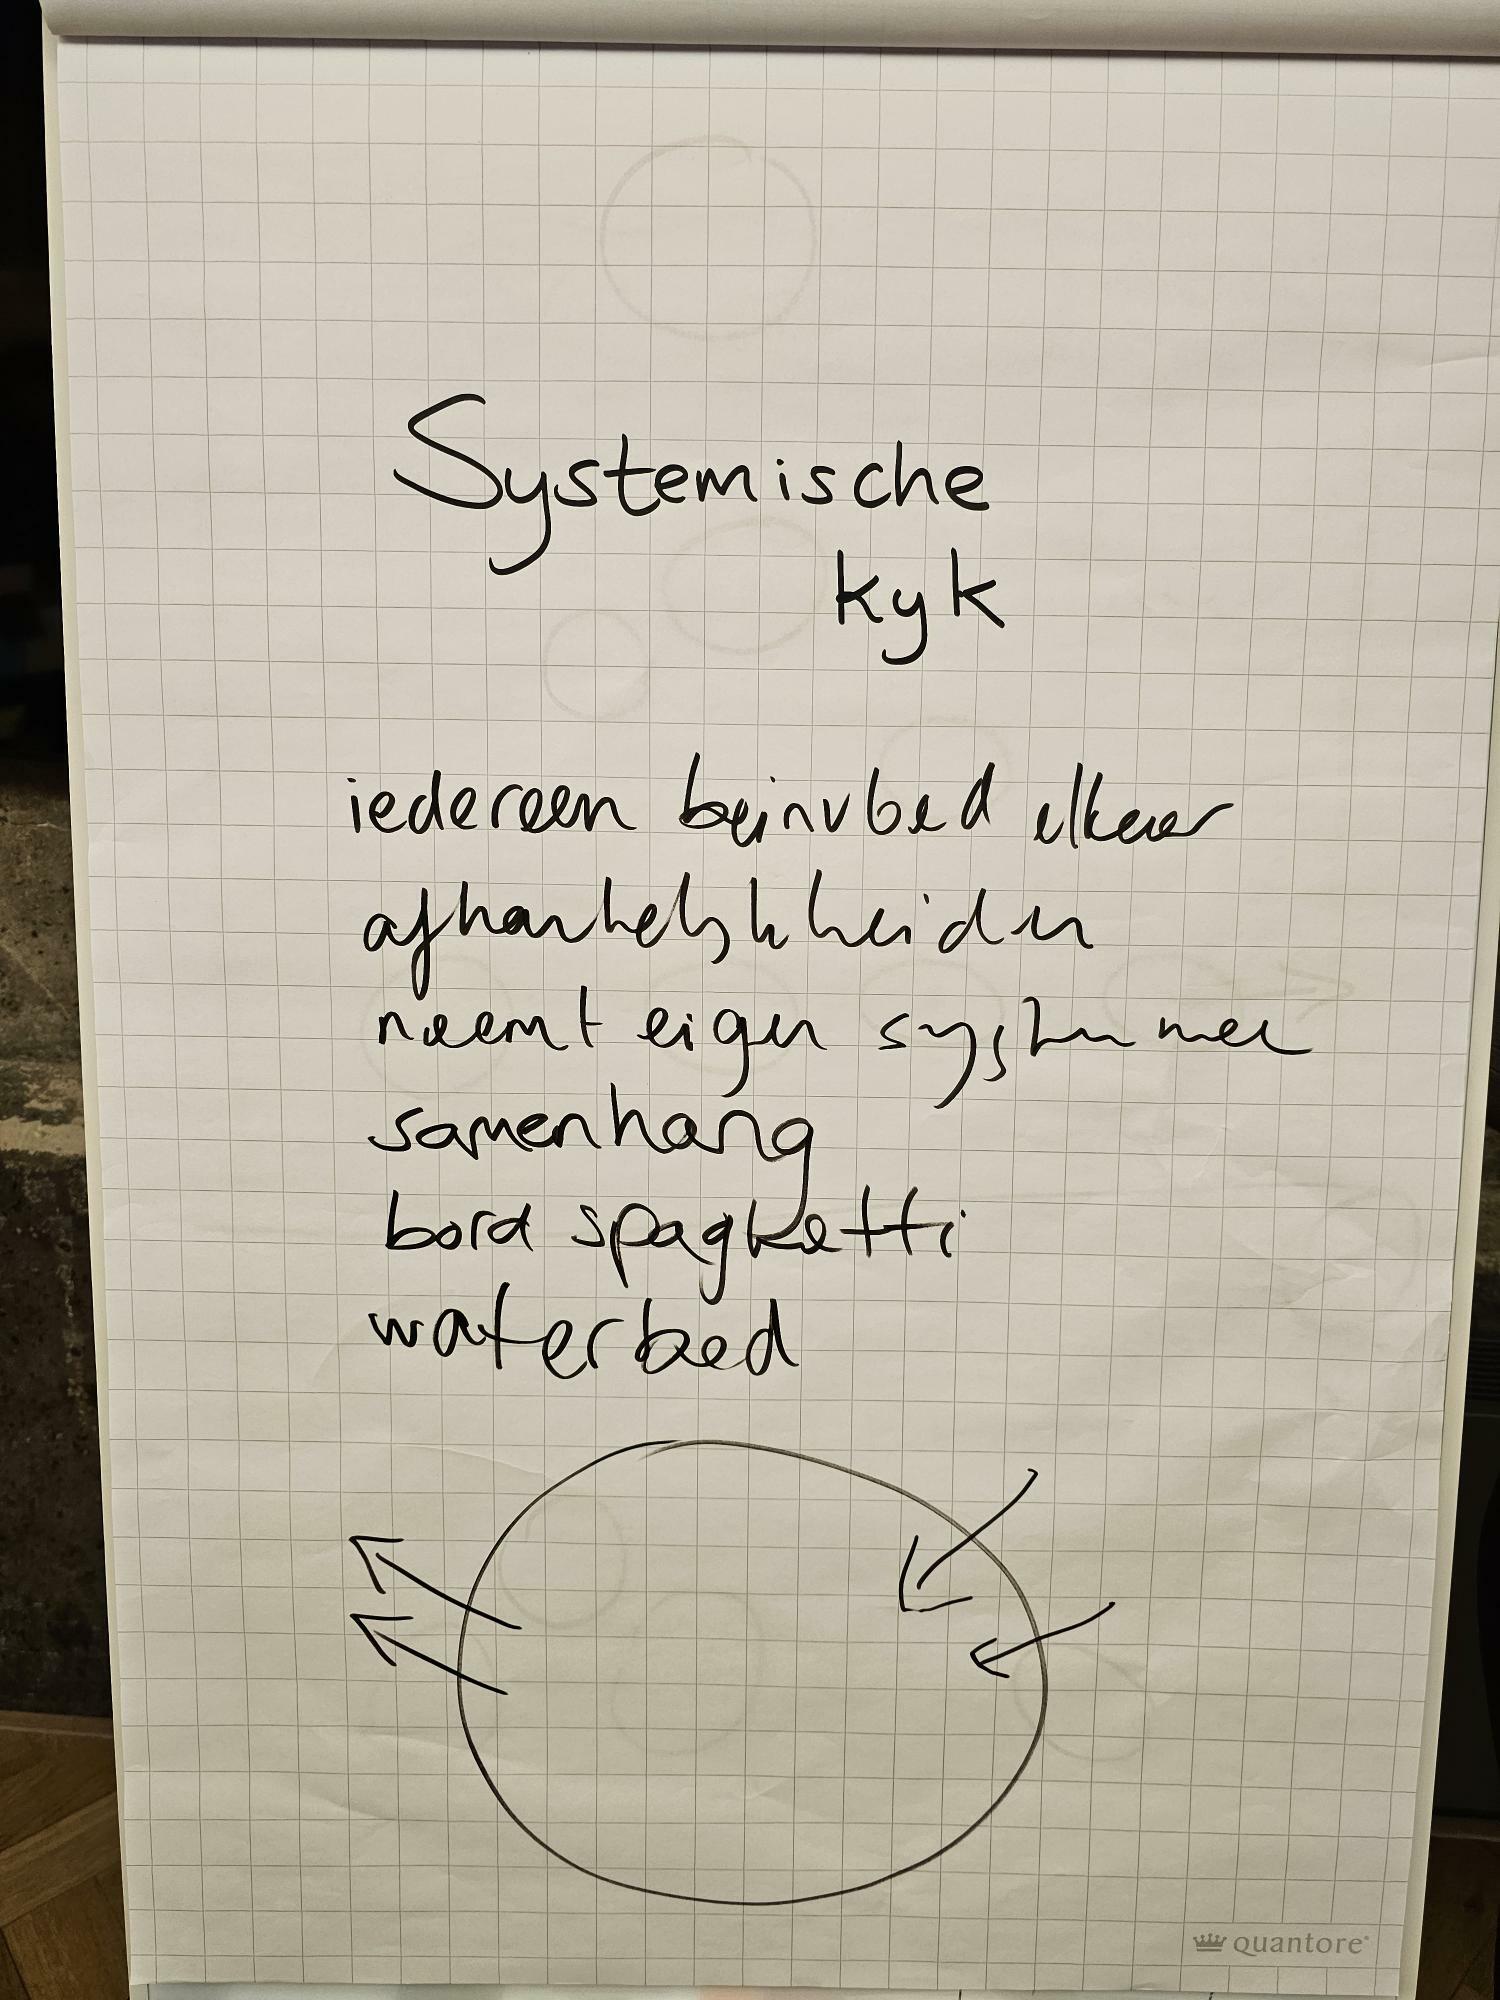 Systemische
kyk
iedereen beinvloed elkaar
afhankelijkheiden
neemt eigen systeem mee
samenhang
bord spaghetti
waterbed
quantore